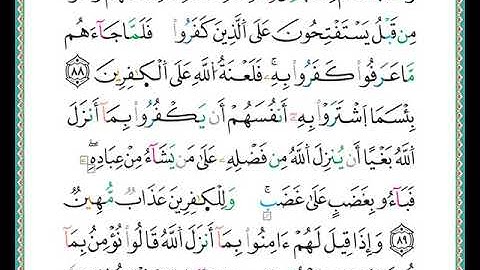 مِن قَبْلُ يَسْتَفْتِحُونَ عَلَى ٱلَّذِينَ كَفَرُوا۟ فَلَمَّا جَآءَهُم
مَّا عَرَفُوا۟ كَفَرُوا۟ بِهِۦۚ فَلَعْنَةُ ٱللَّهِ عَلَى ٱلْكَـٰفِرِينَ ٨٨
بِئْسَمَا ٱشْتَرَوْا۟ بِهِۦٓ أَنفُسَهُمْ أَن يَكْفُرُوا۟ بِمَآ أَنزَلَ
ٱللَّهُ بَغْيًا أَن يُنزِلَ ٱللَّهُ مِن فَضْلِهِۦ عَلَىٰ مَن يَشَآءُ مِنْ عِبَادِهِۦۖ
فَبَآءُو بِغَضَبٍ عَلَىٰ غَضَبٍۚ وَلِلْكَـٰفِرِينَ عَذَابٌ مُّهِينٌ
٨٩ وَإِذَا قِيلَ لَهُمْ ءَامِنُوا۟ بِمَآ أَنزَلَ ٱللَّهُ قَالُوا۟ نُؤْمِنُ بِمَآ